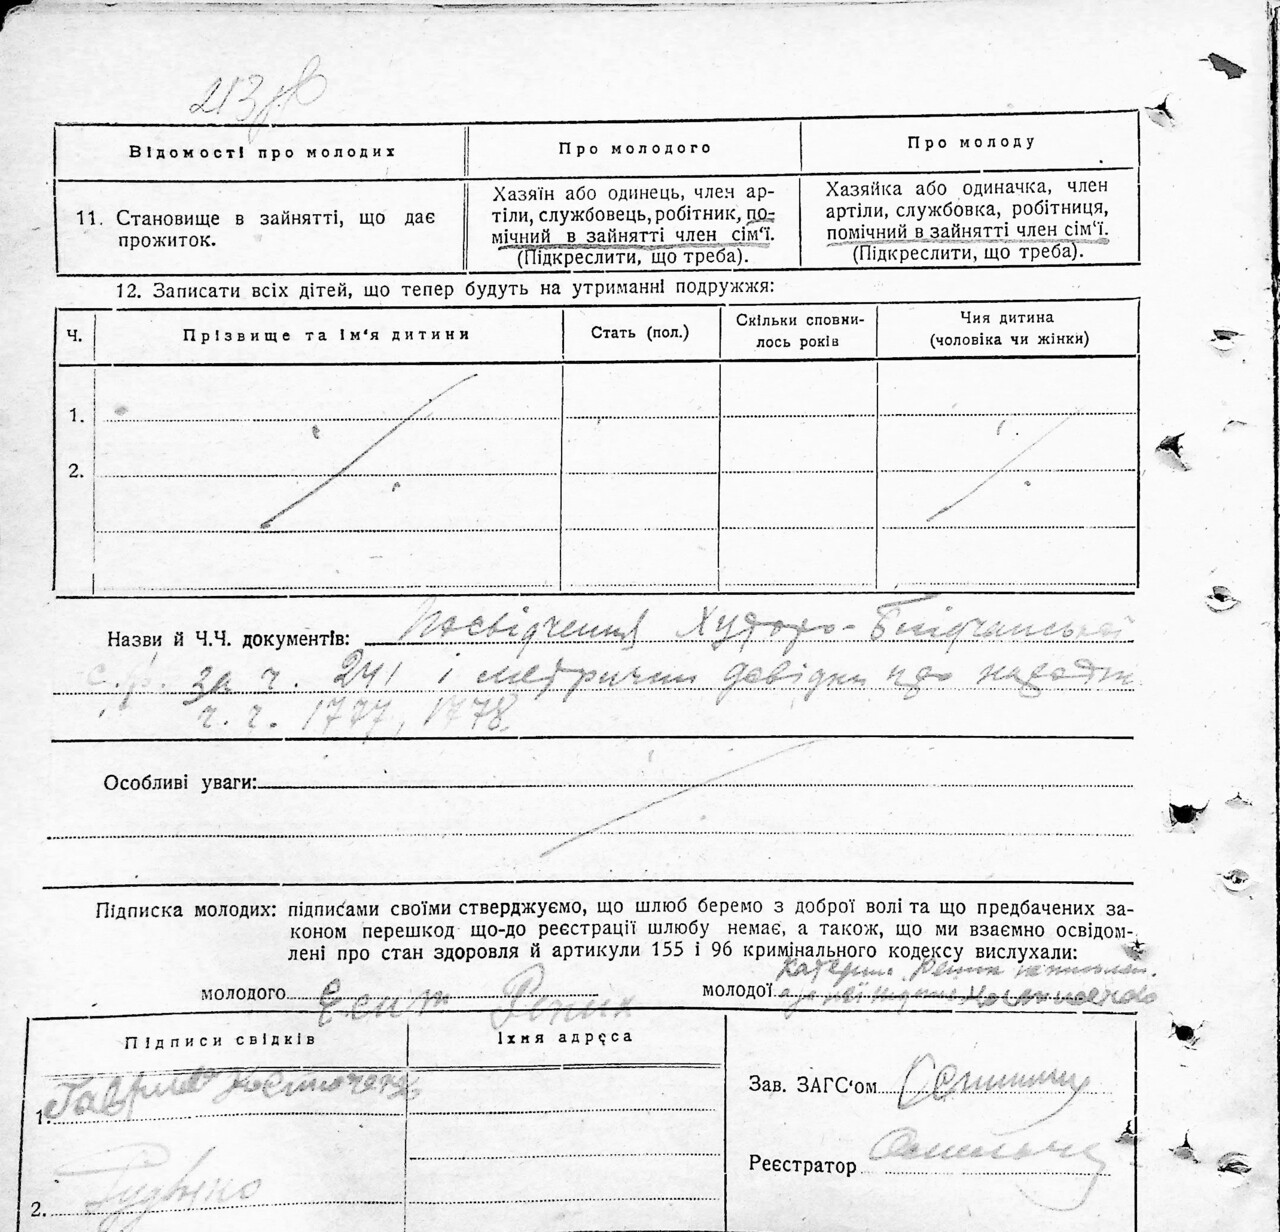 213
Відомості про молодих
Про молодого
Про молоду
11. Становище в зайнятті, що дає
прожиток.
Хазяїн або одинець, член ар-
тіли, службовець, робітник, по-
мічний в зайнятті член сім'ї.
(Підкреслити, що треба).
Хазяйка або одиначка, член
артіли, службовка, робітниця,
помічний в зайнятті член сім'ї.
(Підкреслити, що треба).
12. Записати всіх дітей, що тепер будуть на утриманні подружжя:
Ч.
Прізвище та ім'я дитини
Стать (пол.)
Скільки сповни-
лось років
Чия дитина
(чоловіка чи жінки)
1.
2.
Назви й Ч.Ч. документів: Посвідчення Хуторо-
с.р. за ч. 241 і метричні довідки про
ч.ч. 1777, 1778
Особливі уваги:
Підписка молодих: підписами своїми стверджуємо, що шлюб беремо з доброї волі та що предбачених за-
коном перешкод що-до реєстрації шлюбу немає, а також, що ми взаємно освідом-
лені про стан здоровля й артикули 155 і 96 кримінального кодексу вислухали:
молодого
молодої
Підписи свідків
Їхня адреса
1.
2.
Зав. ЗАГС'ом
Реєстратор